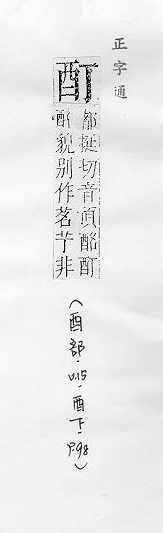 正字通
酊
都挺切音頂酩酊
酊貌别作茗艼非
(酉部.V.15.酉下.P.98)